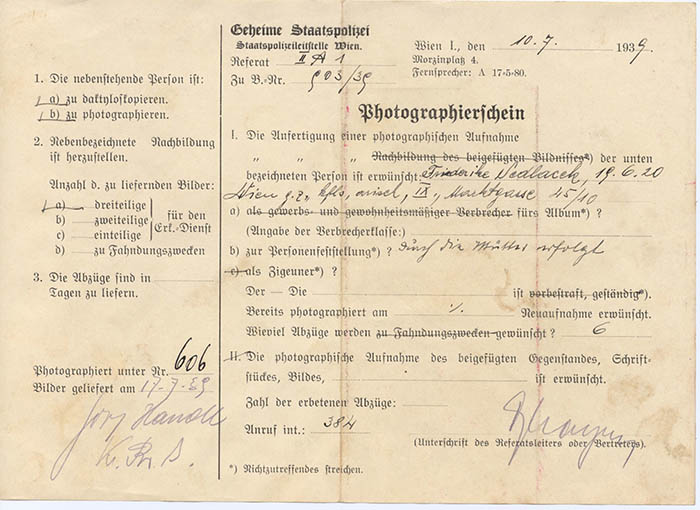 Geheime Staatspolizei
Staatspolizeileitstelle Wien.
Referat II A 1
Zu B.-Nr. 903/39
Wien I., den 10.7. 1939.
Morzinplatz 4.
Fernsprecher: A 17-5-80.
1. Die nebenstehende Person ist:
a) zu daktyloskopieren.
b) zu photographieren.
2. Nebenbezeichnete Nachbildung
ist herzustellen.
Anzahl d. zu liefernden Bilder:
a) dreiteilige
b) zweiteilige
c) einteilige
für den
Erk.-Dienst
d) zu Fahndungszwecken
3. Die Abzüge sind in
Tagen zu liefern.
Photographiert unter Nr. 606
Bilder geliefert am 17.7.39
Photographierschein
I. Die Anfertigung einer photographischen Aufnahme
" " " Nachbildung des beigefügten Bildnisses*) der unten
bezeichneten Person ist erwünscht: Friederike Sedlacek, 19.6.20
Wien g.z., IX., Marktgasse 45/10
a) als gewerbs- und gewohnheitsmäßiger Verbrecher fürs Album*) ?
(Angabe der Verbrecherklasse:)
b) zur Personenfeststellung*) ? durch die Mutter erfolgt
c) als Zigeuner*) ?
Der — Die ist vorbestraft, geständig*).
Bereits photographiert am ./. Neuaufnahme erwünscht.
Wieviel Abzüge werden zu Fahndungszwecken gewünscht ? 6
II. Die photographische Aufnahme des beigefügten Gegenstandes, Schrift-
stückes, Bildes, ist erwünscht.
Zahl der erbetenen Abzüge:
Anruf int.: 384
(Unterschrift des Referatsleiters oder Vertreters).
*) Nichtzutreffendes streichen.